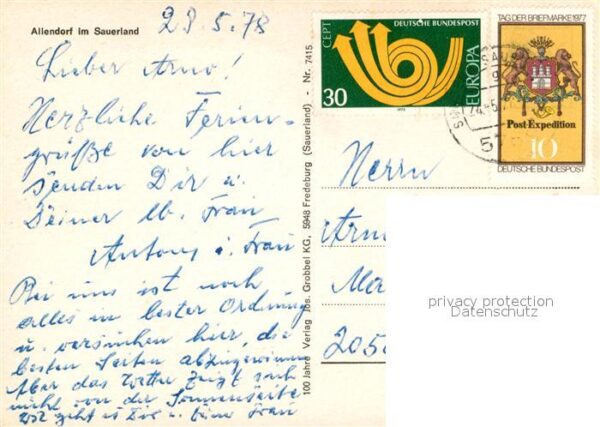 Allendorf im Sauerland
23.5.78
Lieber Arno!
Herzliche Ferien-
grüße von hier
senden Dir u.
Deiner lb. Frau
Antons u. Frau
Bei uns ist noch
alles in bester Ordnung
u. versuchen hier, die
besten Seiten abzugewinnen
Aber das Wetter zeigt sich
nicht von der Sonnenseite
Wie geht es Dir u. Deine Frau
100 Jahre Verlag Jos. Grobbel KG, 5948 Fredeburg (Sauerland) - Nr. 7415
CEPT
DEUTSCHE BUNDESPOST
EUROPA
30
TAG DER BRIEFMARKE 1977
Post-Expedition
10
DEUTSCHE BUNDESPOST
Herrn
2058
privacy protection
Datenschutz